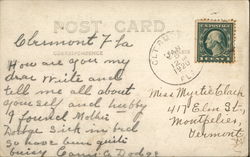 POST CARD
Clermont Fla
CORRESPONDENCE
How are you my
dear Write and
tell me all about
yourself and hubby
I found Mother
Dodge sick in bed
so have been quite
busy Dodge
CLERMONT
JAN
12
1920
FLA
Miss Myrtie Clark
417 Elm St.,
Montpelier,
Vermont.